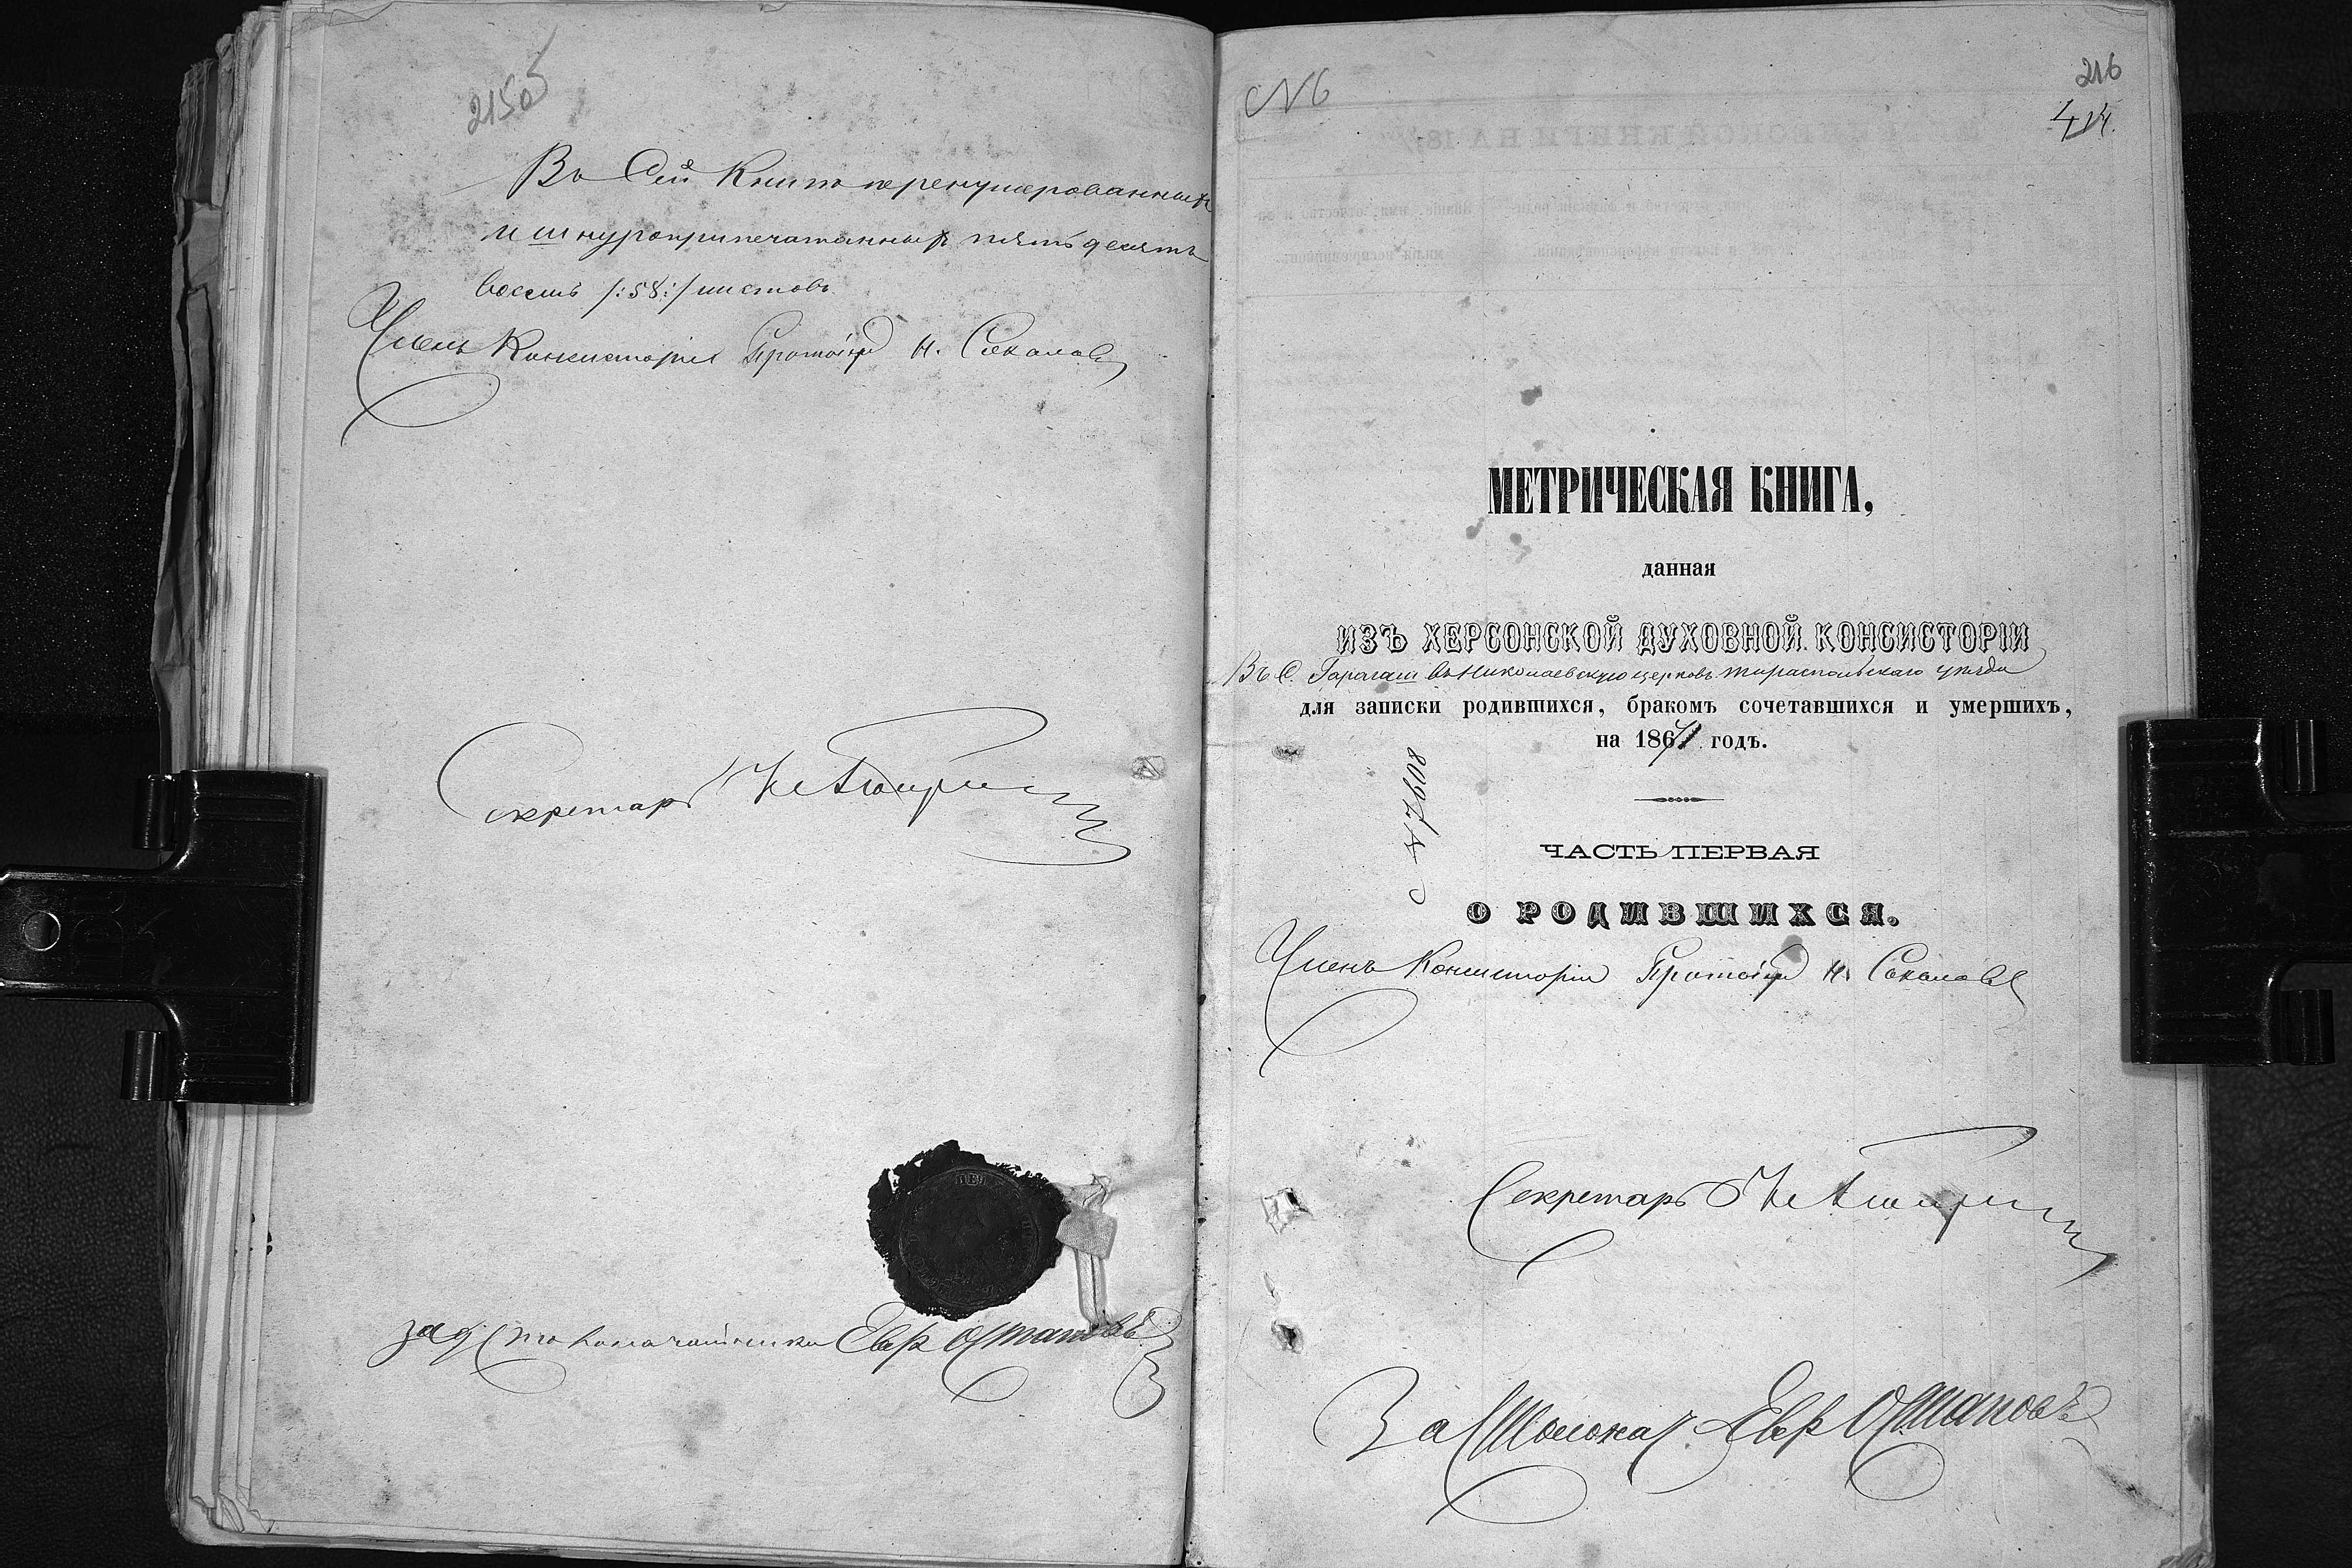 215об
Въ Сей Книгѣ перенумерованныхъ
и шнуроприпечатанныхъ пятьдесятъ
восемь /:58:/ листовъ.
Членъ Консисторіи Протоіер Н. Соколовъ
Секретарь
за Столоначальника Евр Остаповъ
№6
216
414.
МЕТРИЧЕСКАЯ КНИГА,
данная
ИЗЪ ХЕРСОНСКОЙ ДУХОВНОЙ КОНСИСТОРІИ
Въ С. Карагаш въ Николаевскую церковь Тираспольскаго уѣзда
для записки родившихся, бракомъ сочетавшихся и умершихъ,
на 1867 годъ.
№ 7608
ЧАСТЬ ПЕРВАЯ
О РОДИВШИХСЯ.
Членъ Консисторіи Протоіер Н. Соколовъ
Секретарь
За Столонач. Евр Остаповъ